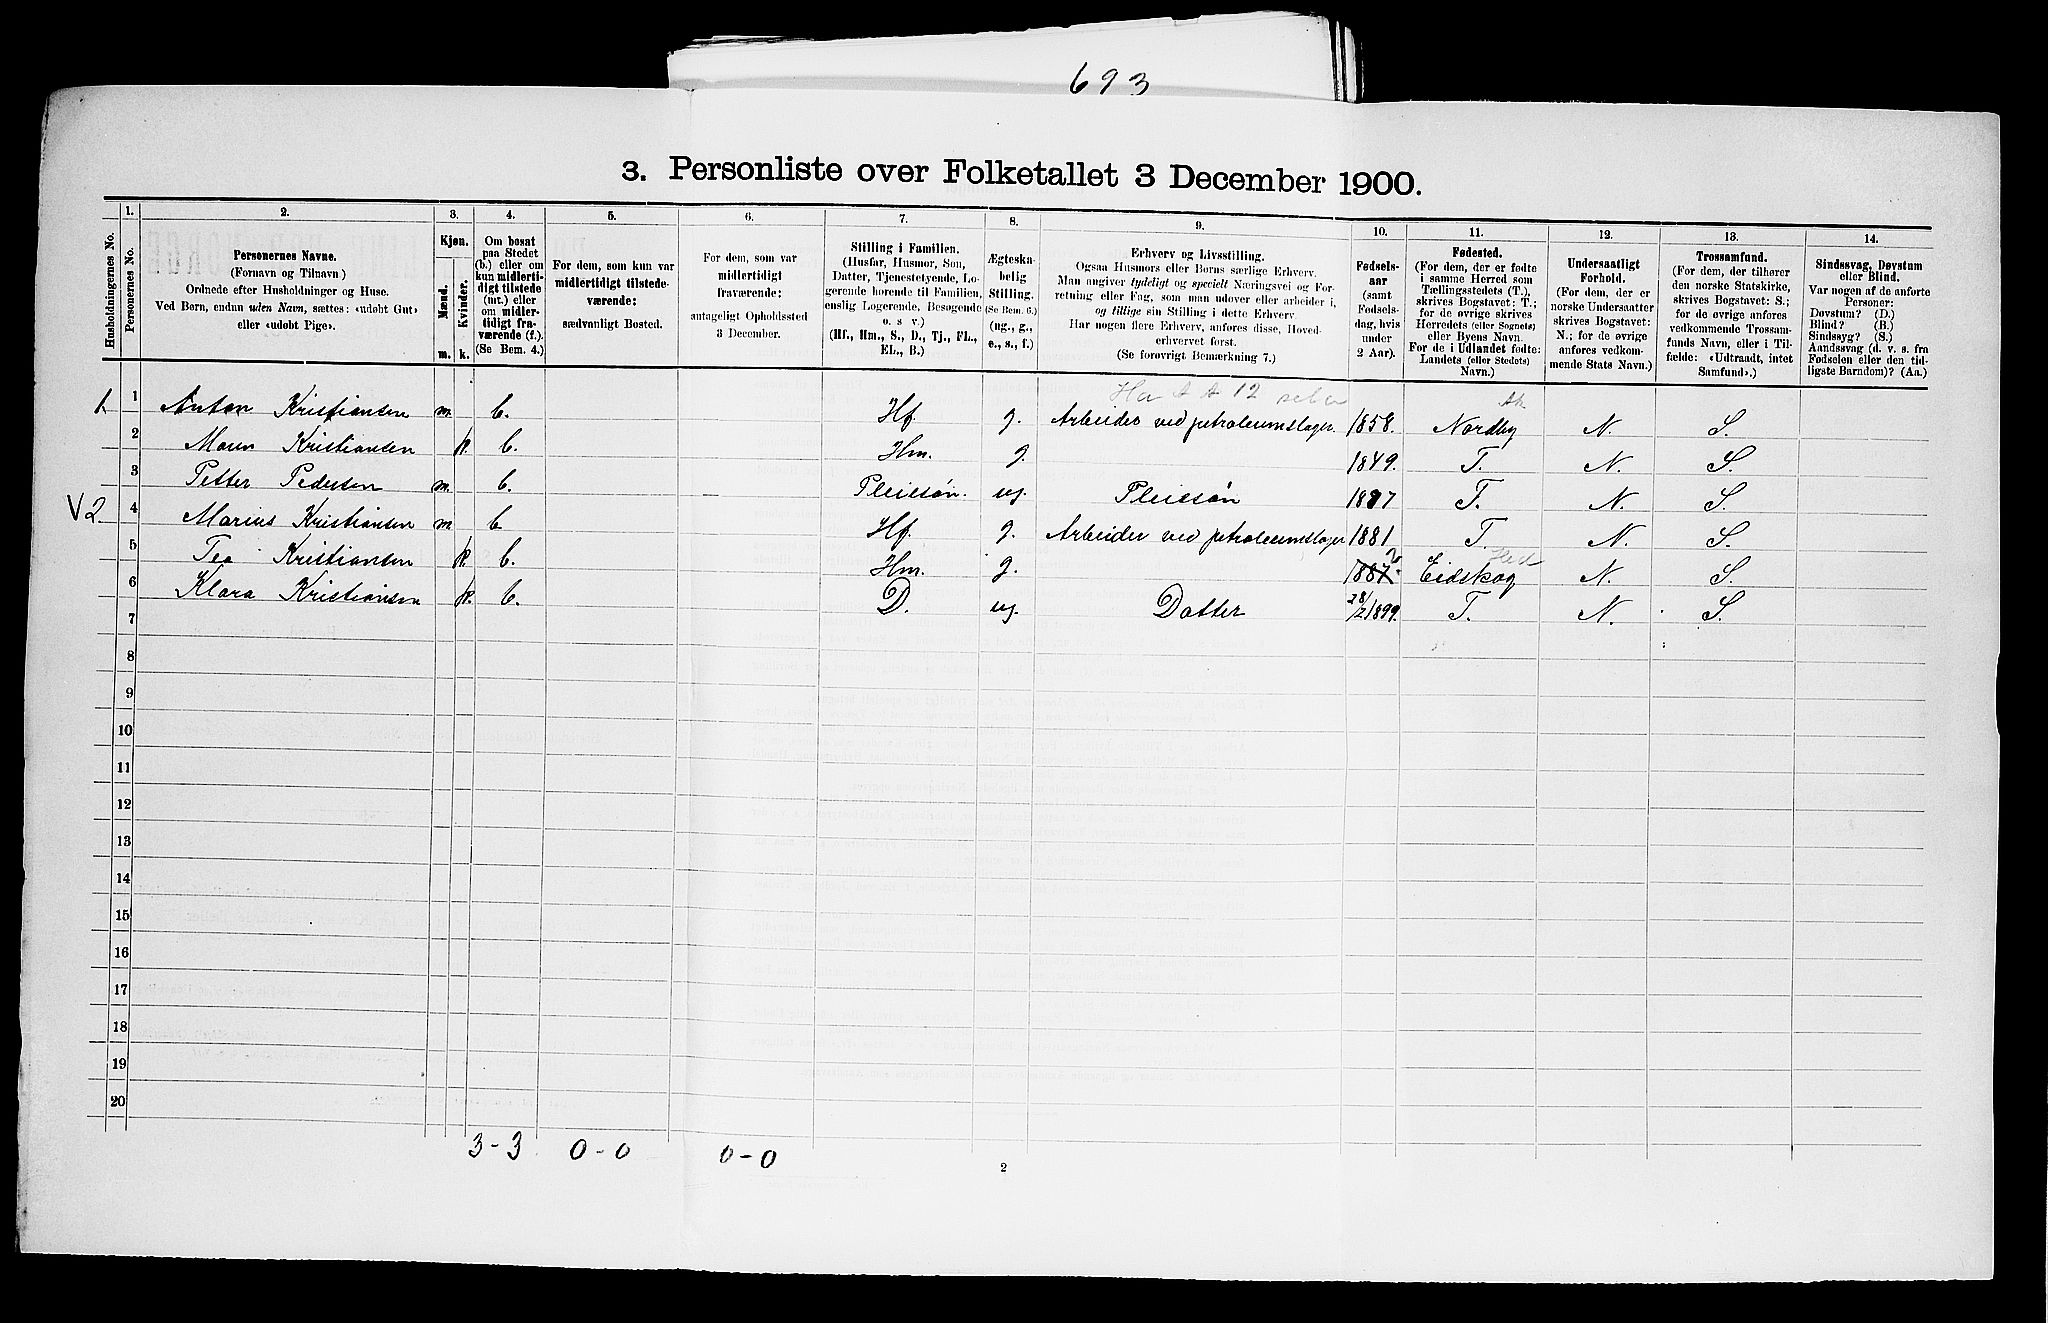 693
3. Personliste over Folketallet 3 December 1900.
Husholdningernes No.
1.
Personernes No.
2.
Personernes Navne.
(Fornavn og Tilnavn)
Ordnede efter Husholdninger og Huse.
Ved Børn, endnu uden Navn, sættes: «udøbt Gut»
eller «udøbt Pige».
3.
Kjøn.
Mænd.
Kvinder.
m.
k.
4.
Om bosat
paa Stedet
(b.) eller om
kun midlerti-
digt tilstede
(mt.) eller
om midler-
tidigt fra-
værende (f.).
(Se Bem. 4.)
5.
For dem, som kun var
midlertidigt tilstede-
værende:
sædvanligt Bosted.
6.
For dem, som var
midlertidigt
fraværende:
antageligt Opholdssted
3 December.
7.
Stilling i Familien.
(Husfar, Husmor, Søn,
Datter, Tjenestetyende, Lo-
gerende hørende til Familien,
enslig Logerende, Besøgende
o. s. v.)
(Hf., Hm., S., D., Tj., FL.,
EL., B.)
8.
Ægteska-
belig
Stilling.
(Se Bem. 6.)
(ug., g.,
e., s., f.)
9.
Erhverv og Livsstilling.
Ogsaa Husmors eller Børns særlige Erhverv.
Man angiver tydeligt og specielt Næringsvei og For-
retning eller Fag, som man udøver eller arbeider i,
og tillige sin Stilling i dette Erhverv.
Har nogen flere Erhverv, anføres disse, Hoved-
erhvervet først.
(Se forøvrigt Bemærkning 7.)
10.
Fødsels-
aar
(samt
Fødsels-
dag, hvis
under
2 Aar).
11.
Fødested.
(For dem, der er fødte
i samme Herred som
Tællingsstedets (T.),
skrives Bogstavet: T.;
for de øvrige skrives
Herredets (eller Sognets)
eller Byens Navn.
For de i Udlandet fødte:
Landets (eller Stedets)
Navn.)
12.
Undersaatligt
Forhold.
(For dem, der er
norske Undersaatter
skrives Bogstavet:
N.; for de øvrige
anføres vedkom-
mende Stats Navn.)
13.
Trossamfund.
(For dem, der tilhører
den norske Statskirke,
skrives Bogstavet: S.;
for de øvrige anføres
vedkommende Trossam-
funds Navn, eller i Til-
fælde: «Udtraadt, intet
Samfund».)
14.
Sindssvag, Døvstum
eller Blind.
Var nogen af de anførte
Personer:
Døvstum? (D.)
Blind? (B.)
Sindssyg? (S.)
Aandssvag (d. v. s. fra
Fødselen eller den tid-
ligste Barndom)? (Aa.)
1. 1 Anton Kristiansen m. b. Hf g. Arbeider ved petroleumslager. 1858. Nordby N. S.
2 Maren Kristiansen k. b. Hm. g. 1849. T. N. S.
3 Petter Pedersen m. b. Pleiesøn. ug. Pleiesøn 1887 T. N. S.
V2 4 Marius Kristiansen m b Hf. g. Arbeider ved petroleumslager 1881 T. N. S.
5 Tea Kristiansen k. b. Hm. g. Eidskog Hed N. S.
6 Klara Kristiansen k. b. D. ug. Datter 28/2 1899. T. N. S.
7
8
9
10
11
12
13
14
15
16
17
18
19
20
3-3 0-0 0-0
2